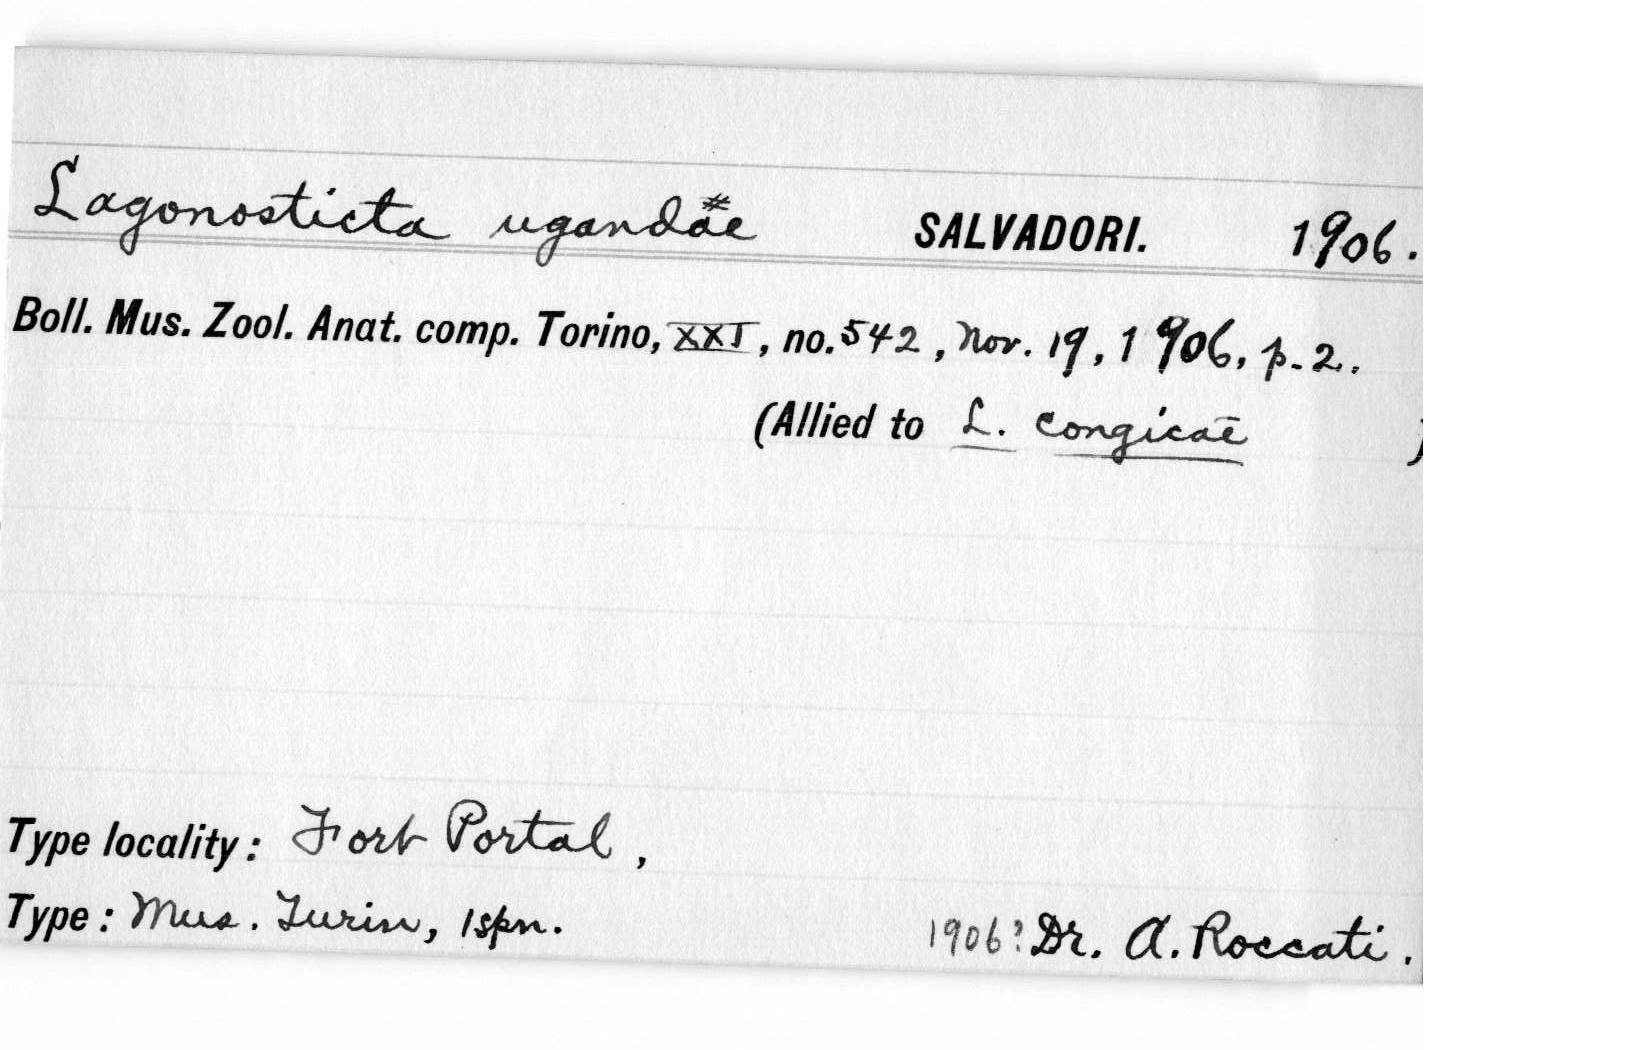 Lagonosticta ugandae # SALVADORI. 1906.
Boll. Mus. Zool. Anat. comp. Torino, XXI, no. 542, Nov. 19, 1906, p. 2.
(Allied to L. congicae )
Type locality: Fort Portal,
Type: Mus. Turin, 1 spn. 1906? Dr. A. Roccati.